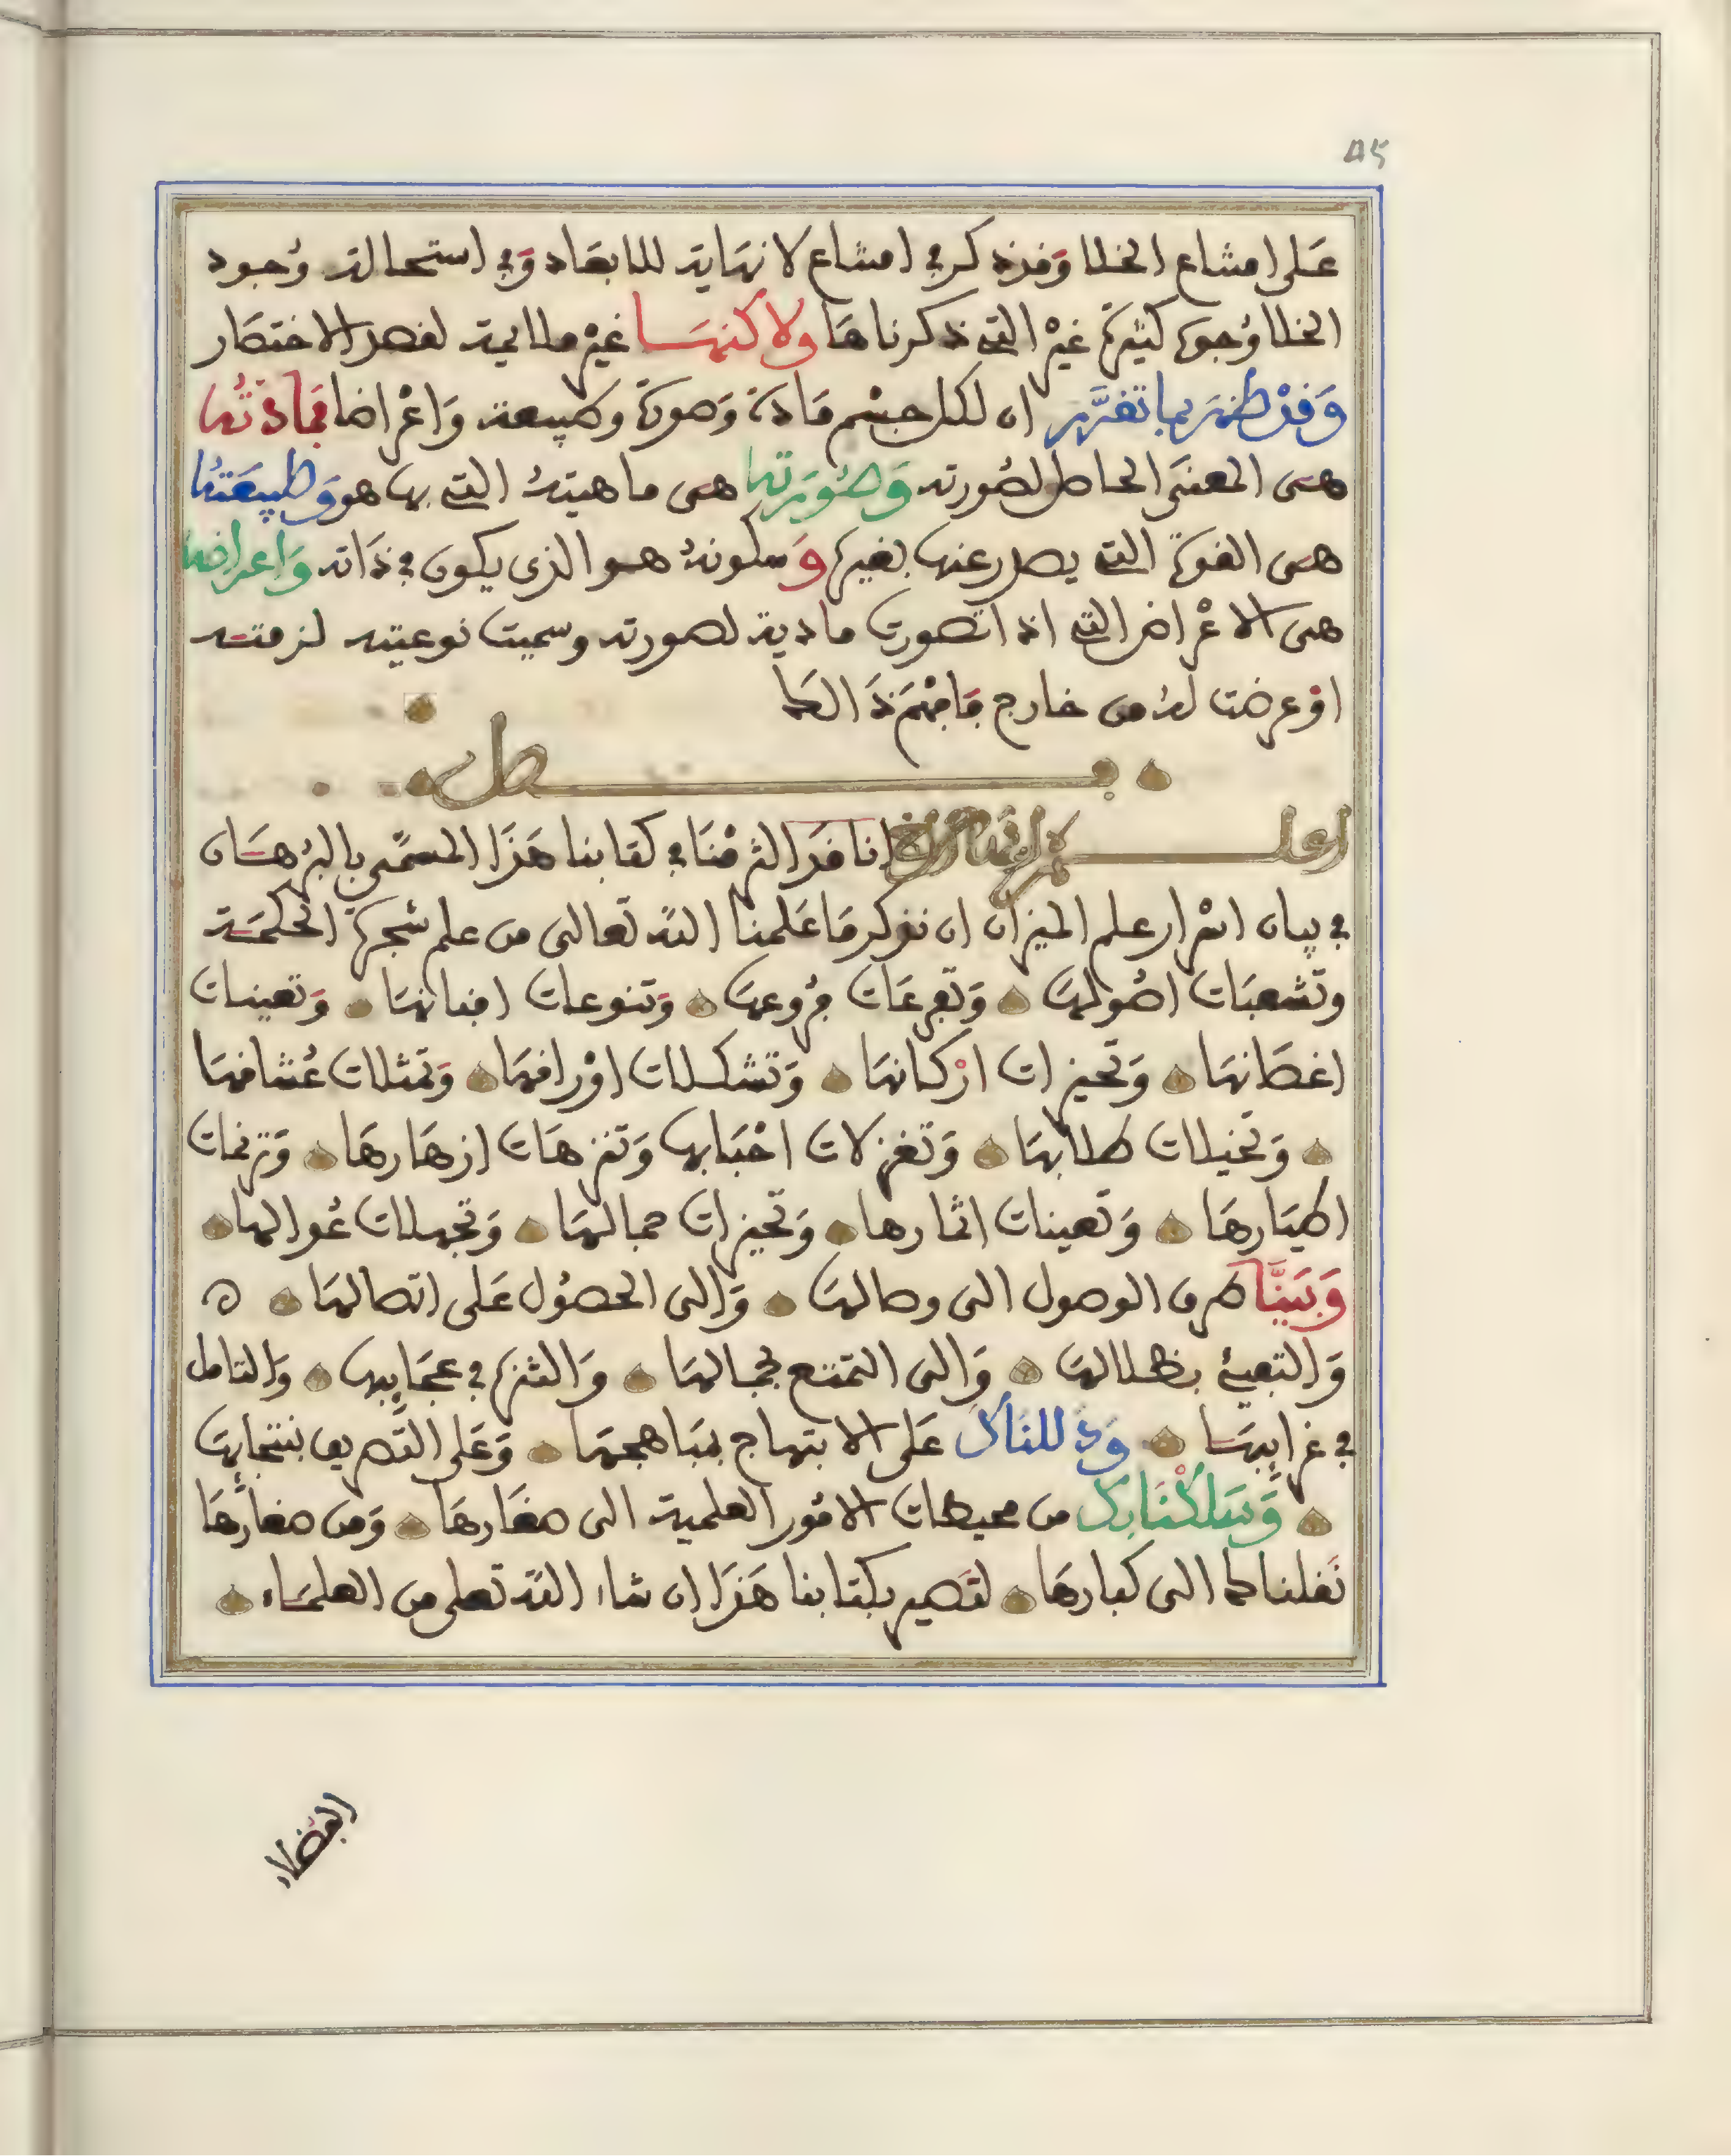 ٤٥
على امتناع الخلا وقد ذكر في امتناع لا نهاية للابعاد وفي استحالة وجود
الخلا وجوه كثيرة غير التي ذكرناها ولاكنها غير ملايمة لقصد الاختصار
وقد ظهر بما تقرر ان لكل جسم مادة وصورة وطبيعة واعراضا فمادتها
هي المعنى الحامل لصورته وصورتها هي ماهيته التي بها هو وطبيعتها
هي القوة التي يصدر عنها تغيره وسكونه هو الذي يكون في ذاته واعراضه
هي الاعراض التي اذا تصورت مادية لصورته وسميت نوعيته لزمته
او عرضت له من خارج فافهم ذالك
فصل
اعلم ايها الاخ انا قد التزمنا في كتابنا هذا المسمى بالبرهان
في بيان اسرار علم الميزان ان نذكر ما علمنا الله تعالى من علم شجرة الحكمة
وتشعبات اصولها وتفرعات فروعها وتنوعات افنانها وتعينات
اغصانها وتحيزات اركانها وتشكلات اوراقها وتمثلات عشاقها
وتخيلات طلابها وتغزلات احبابها وتنزهات ازهارها وترنمات
اطيارها وتعينات اثمارها وتحيزات جمالها وتجملات عوالمها
وبينا طرق الوصول الى وصالها والى الحصول على اتصالها ه
والتفيئ بظلالها والى التمتع بجمالها والتنزه في عجايبها والتامل
في غرايبها وذللناك على الابتهاج بمباهجها وعلى التصريف بنتجاتها
وسلكنابك من محيطات الامور العلمية الى صغارها ومن صغارها
نقلناكما الى كبارها لتصير بكتابنا هذا ان شاء الله تعلى من العلماء
الفضلاء